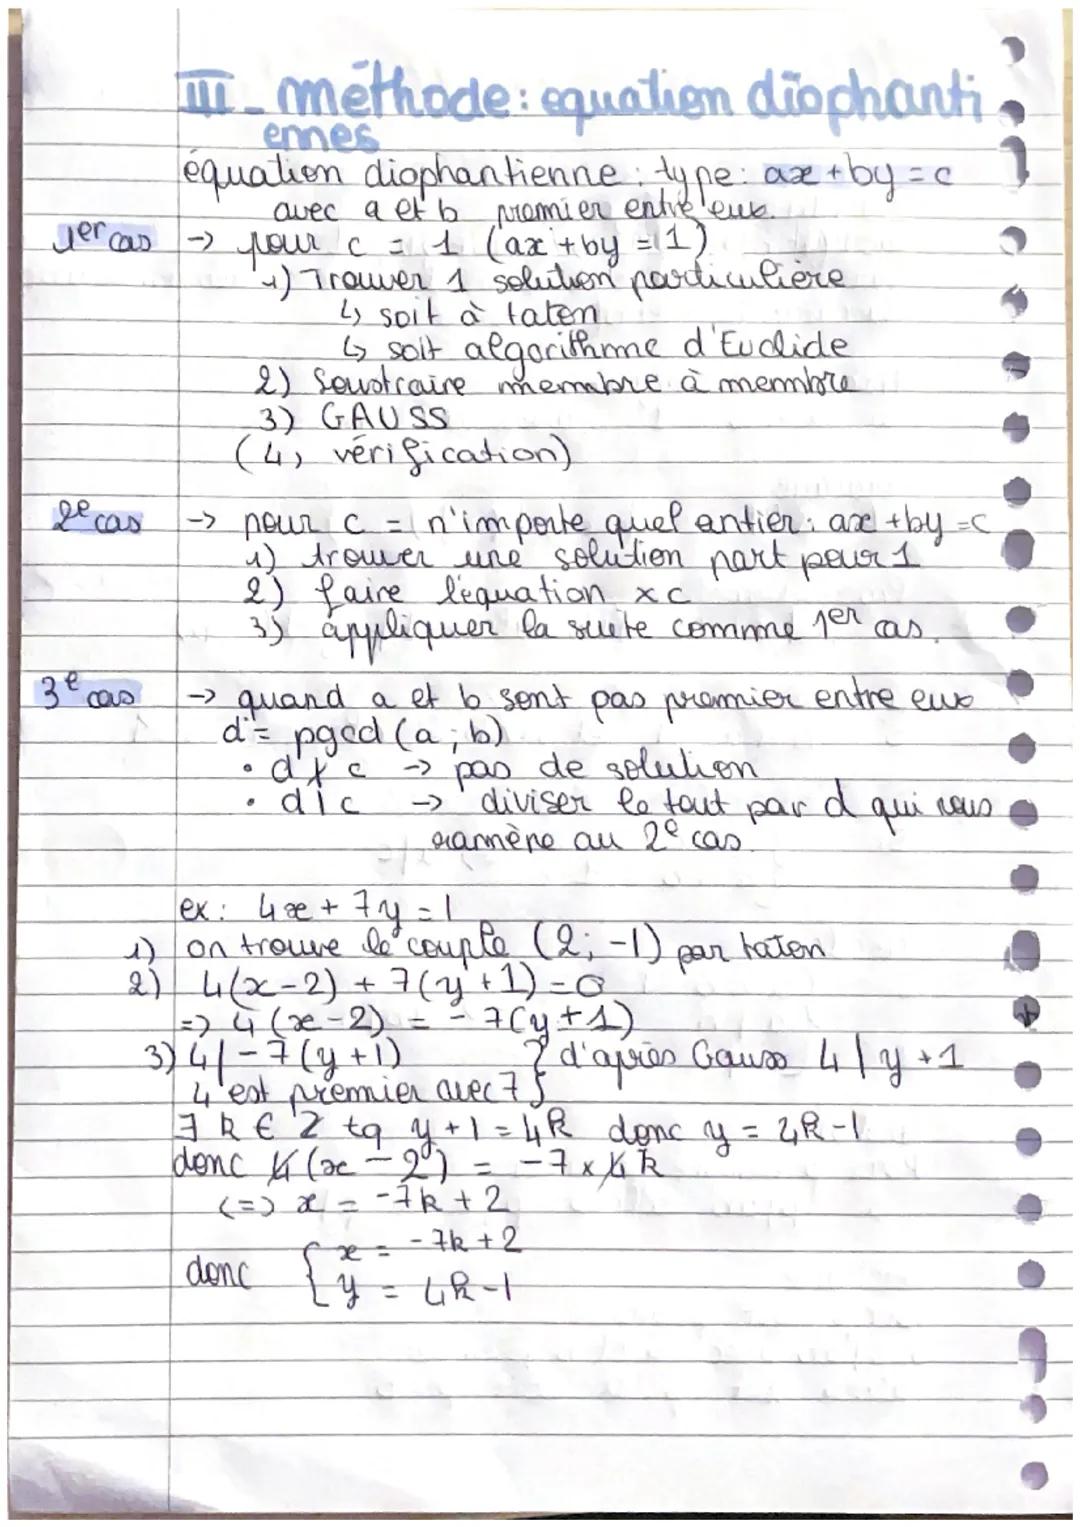 III - méthode: equation diophanti
ennes
équation diophantienne: type: ax + by = c
avec a et b premier entre eux.
1er cas → pour c = 1 (ax + by = 1)
1) Trouver 1 solution particulière
↳ soit à taton
↳ soit algorithme d'Euclide
2) Soustraire membre à membre
3) GAUSS
(4) vérification)
2e cas → pour c = n'importe quel entier: ax + by = c
1) trouver une solution part pour 1
2) faire l'équation x c
3) appliquer la suite comme 1er cas.
3e cas → quand a et b sont pas premier entre eux
d = pgcd (a ; b)
• d ∤ c → pas de solution
• d | c → diviser le tout par d qui nous
ramène au 2e cas.
ex: 4x + 7y = 1
1) on trouve le couple (2; -1) par taton
2) 4(x-2) + 7(y+1) = 0
=> 4(x-2) = -7(y+1)
3) 4 | -7(y+1) } d'après Gauss 4 | y+1
4 est premier avec 7 }
∃ k ∈ Z tq y+1 = 4k donc y = 4k-1
donc 4(x-2) = -7 x 4k
<=> x = -7k + 2
donc { x = -7k + 2
y = 4k-1